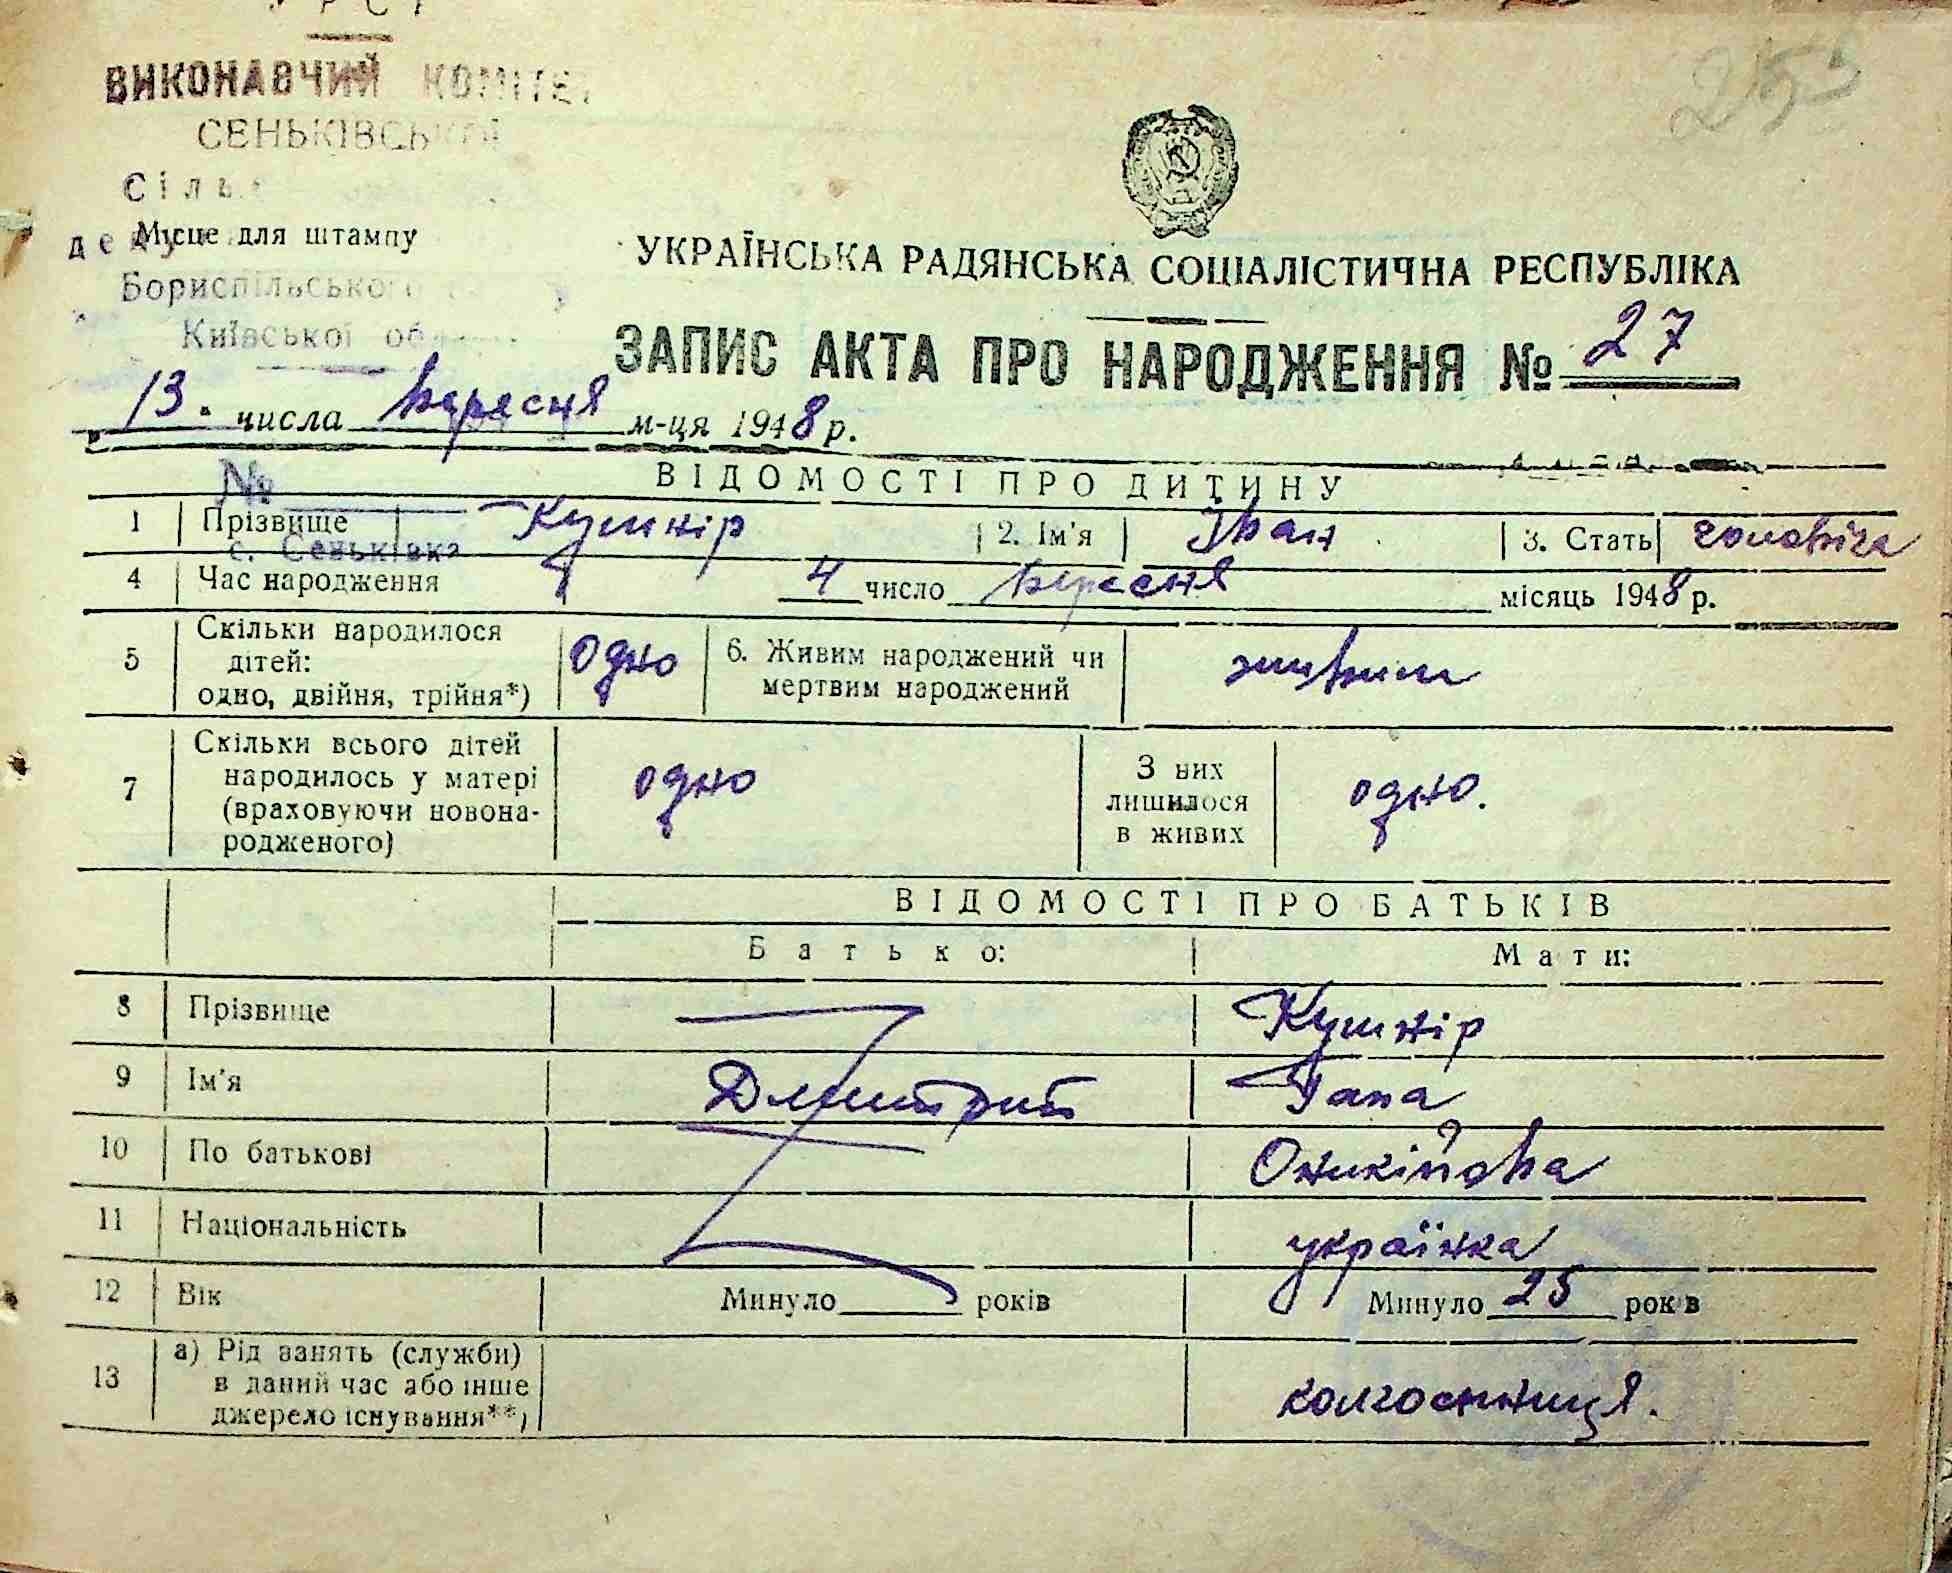 УРСР
253
ВИКОНАВЧИЙ КОМІТЕТ
СЕНЬКІВСЬКОЇ
Сіль
Місце для штампу
Бориспільського
Київської об
УКРАЇНСЬКА РАДЯНСЬКА СОЦІАЛІСТИЧНА РЕСПУБЛІКА
ЗАПИС АКТА ПРО НАРОДЖЕННЯ № 27
13. числа вересня м-ця 1948 р.
№
ВІДОМОСТІ ПРО ДИТИНУ
1 Прізвище Кушнір 2. Ім'я Іван 3. Стать чоловіча
с. Сеньківка
4 Час народження 4 число вересня місяць 1948 р.
5 Скільки народилося
дітей:
одно, двійня, трійня*) одно 6. Живим народжений чи
мертвим народжений живим
7 Скільки всього дітей
народилось у матері
(враховуючи новона-
родженого) одно З них
лишилося
в живих одно.
ВІДОМОСТІ ПРО БАТЬКІВ
Батько: Мати:
8 Прізвище Кушнір
9 Ім'я Дмитрий Гапа
10 По батькові Оникійовна
11 Національність українка
12 Вік Минуло років Минуло 25 років
13 а) Рід занять (служби)
в даний час або інше
джерело існування**) колгоспниця.